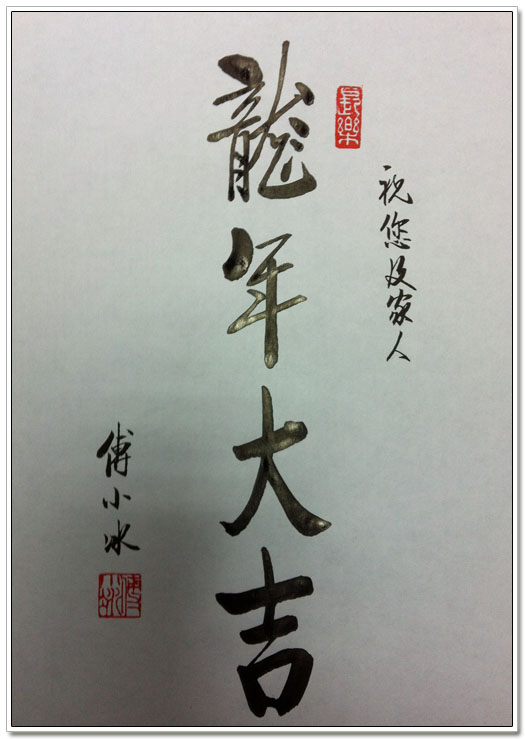 长樂
祝您及家人
龍年大吉
傅小冰